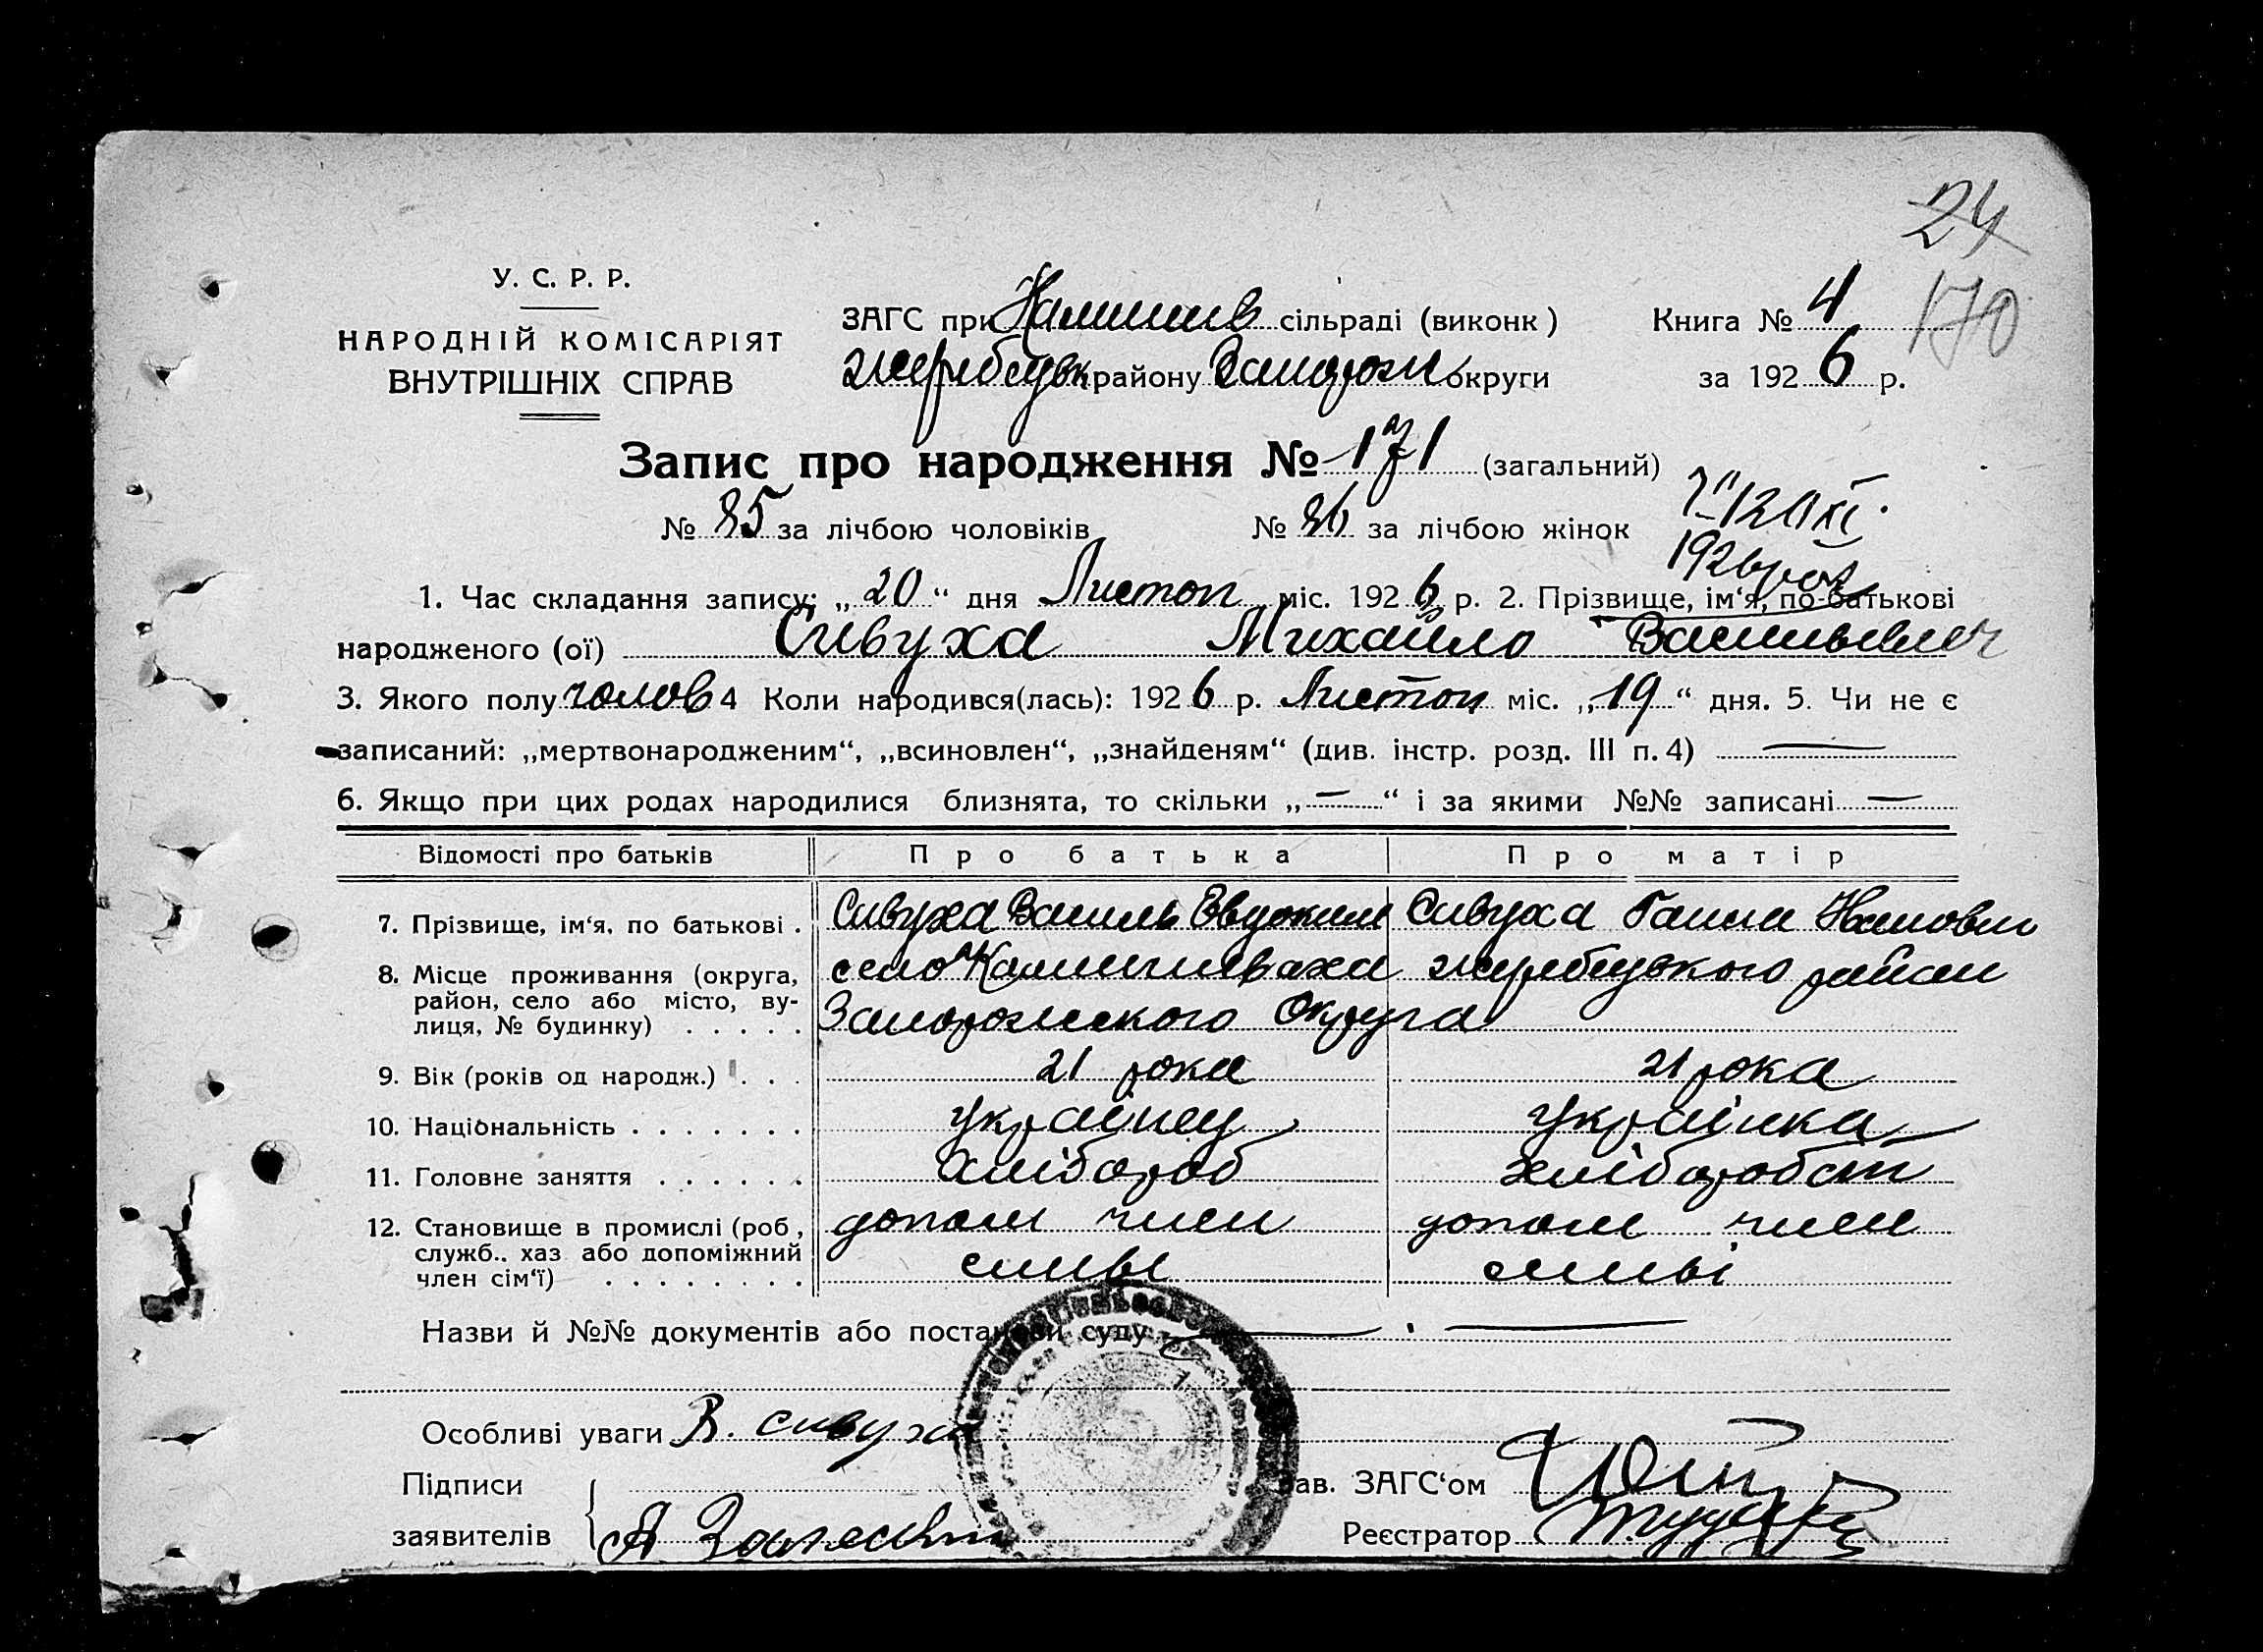 24
170
У. С. Р. Р.
НАРОДНІЙ КОМІСАРІЯТ
ВНУТРІШНІХ СПРАВ
ЗАГС при Камишев сільраді (виконк)
Жеребецьк району Запорож округи
Книга № 4
за 1926 р.
Запис про народження № 171 (загальний)
№ 85 за лічбою чоловіків № 86 за лічбою жінок
1. Час складання запису: „20“ дня Листоп міс. 1926 р. 2. Прізвище, ім‘я, по-батькові
народженого (ої) Сивуха Михайло Васильевич
3. Якого полу чолов 4 Коли народився(лась): 1926 р. Листоп міс. „19“ дня. 5. Чи не є
записаний: „мертвонародженим“, „всиновлен“, „знайденям“ (див. інстр. розд. III п. 4) —
6. Якщо при цих родах народилися близнята, то скільки „—“ і за якими №№ записані —
Відомості про батьків Про батька Про матір
7. Прізвище, ім‘я, по батькові . Сивуха Василь Сивуха Ганна
8. Місце проживання (округа, село Камишеваха Жеребецького район
район, село або місто, ву- Запорожського Округа
лиця, № будинку) . . . . .
9. Вік (років од народж.) . . . 21 рока 21 рока
10. Національність . . . . . . . українец українка
11. Головне заняття . . . . . . хлібороб хліборобст
12. Становище в промислі (роб, допом член допом член
служб.. хаз або допоміжний семьї семьі
член сім‘ї) . . . . . . . .
Назви й №№ документів або постанови суду — . —
Особливі уваги В. сивуха
Підписи Зав. ЗАГС‘ом
заявителів Реєстратор